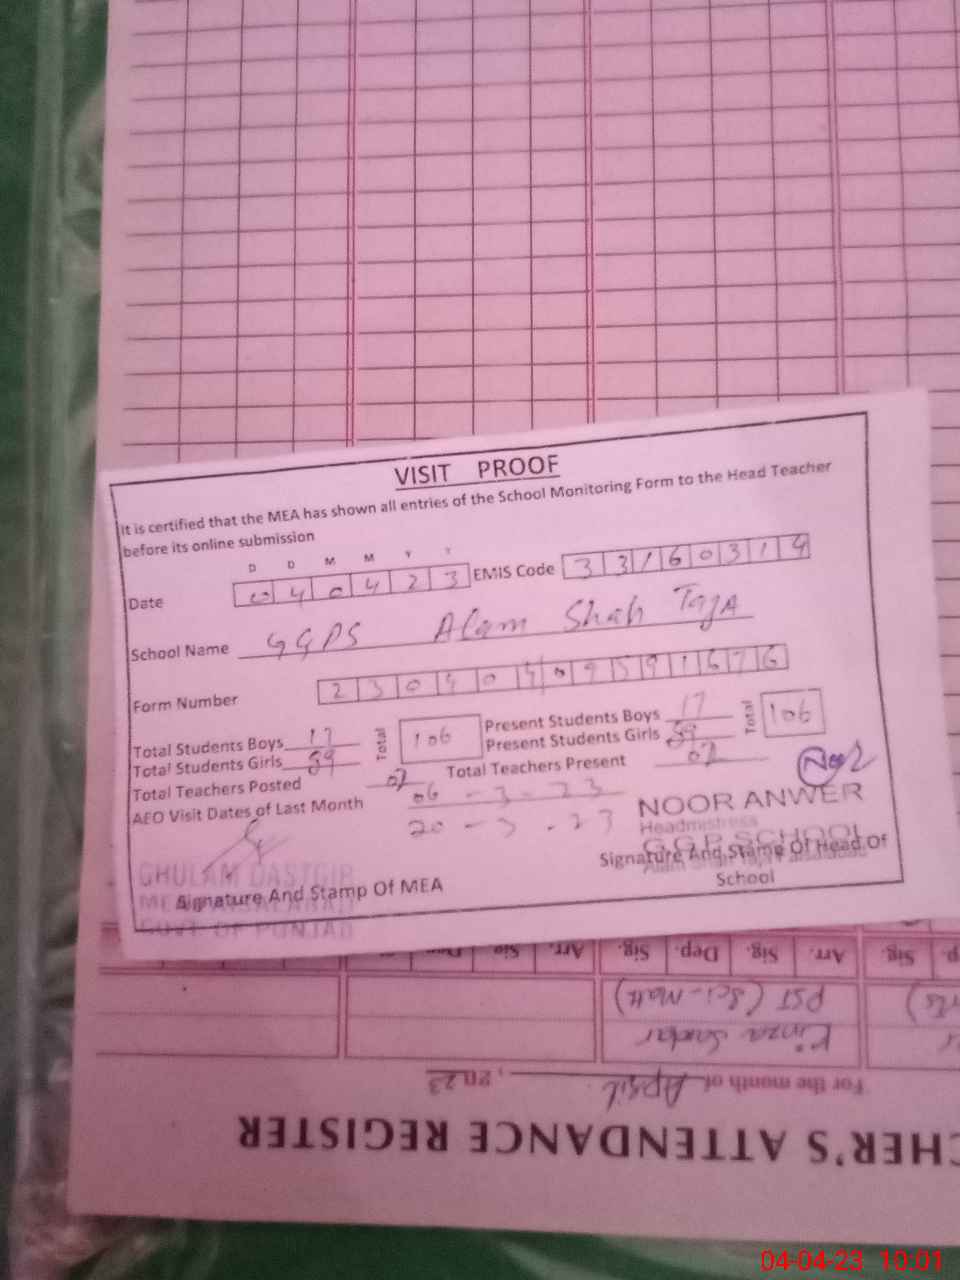 VISIT PROOF
It is certified that the MEA has shown all entries of the School Monitoring Form to the Head Teacher
before its online submission
D D M M Y Y
Date 0 4 0 4 2 3 EMIS Code 3 3 1 6 0 3 1 4
School Name GGPS Alam Shah TajA
Form Number 2 3 0 4 0 4 0 9 5 9 1 6 7 6
Total Students Boys 17 Total 106 Present Students Boys 17 Total 106
Total Students Girls 89 Present Students Girls 89
Total Teachers Posted 07 Total Teachers Present 07
AEO Visit Dates of Last Month 06 - 3 - 23
20 - 3 - 23
Noor
NOOR ANWER
Headmistress
G.G.P. SCHOOL
Signature And Stamp Of Head Of
School
GHULAM DASTGIR
Signature And Stamp Of MEA
GOVT. OF PUNJAB
Arr. Sig. Dep. Sig. Arr. Sig.
PST (Sci-Math)
Kinza
For the month of April, 2023
CHER'S ATTENDANCE REGISTER
04-04-23 10:01